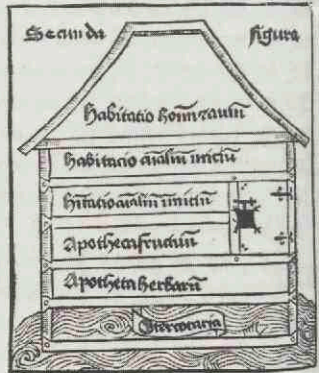 Secunda figura
habitatio hoīm ⁊ auiū
habitacio aīaliū mitiū
hītatio aīaliū īmitiū
Apotheca fructuū
Apotheca herbarū
Stercoraria